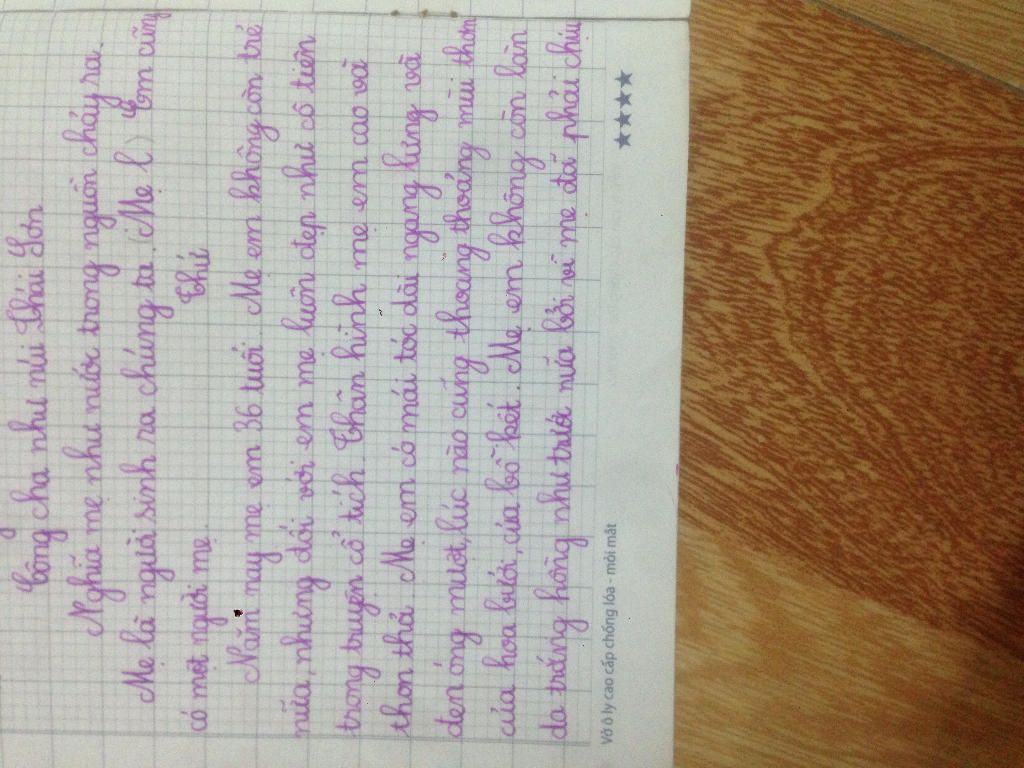 Công cha như núi Thái Sơn
Nghĩa mẹ như nước trong nguồn chảy ra.
Mẹ là người sinh ra chúng ta. (Mẹ l) Em cũng
Thứ
có một người mẹ.
Năm nay mẹ em 36 tuổi. Mẹ em không còn trẻ
nữa, nhưng đối với em mẹ luôn đẹp như cô tiên
trong truyện cổ tích. Thân hình mẹ em cao và
thon thả. Mẹ em có mái tóc dài ngang lưng và
đen óng mượt, lúc nào cũng thoang thoảng mùi thơm
của hoa bưởi, của bồ kết. Mẹ em không còn làn
da trắng hồng như trước nữa bởi vì mẹ đã phải chịu
Vở ô ly cao cấp chống lóa - mỏi mắt
★★★★